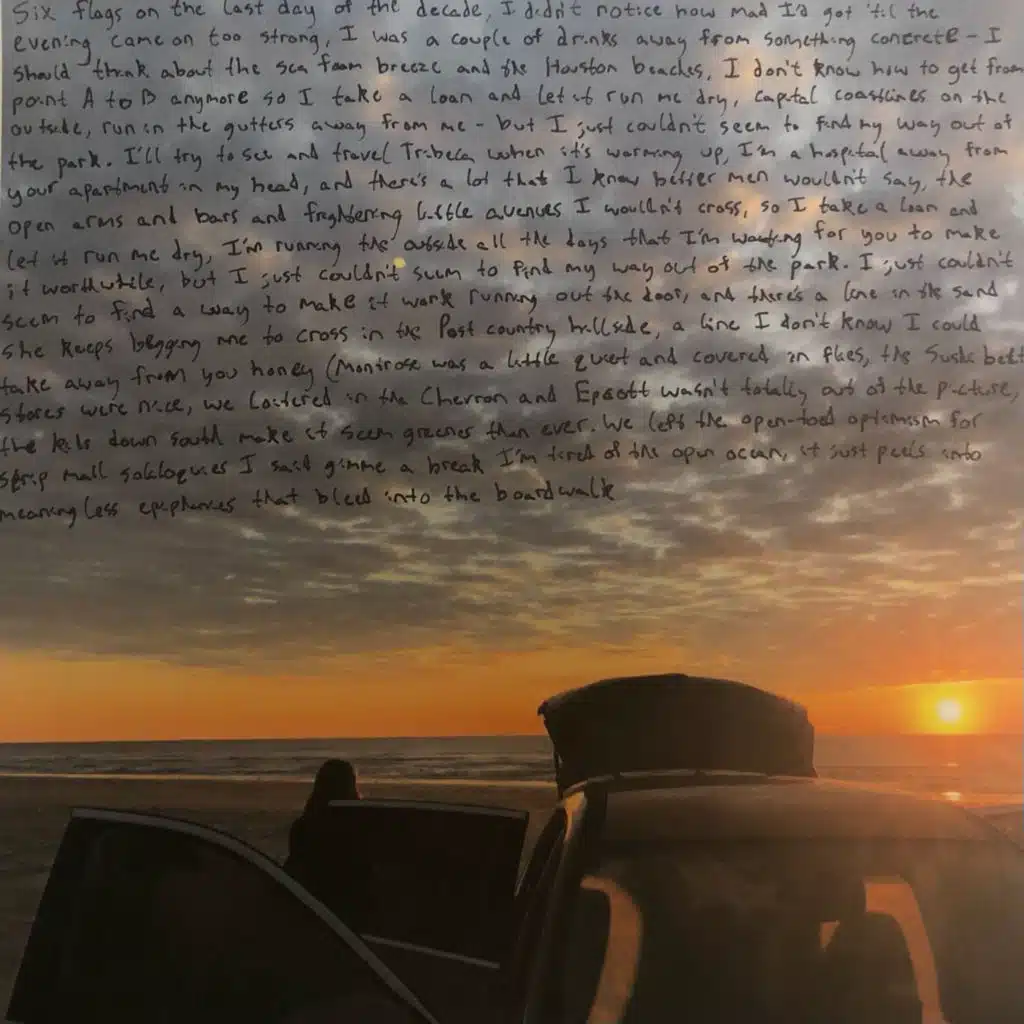 Six flags on the last day of the decade, I didn't notice how mad I'd got 'til the
evening came on too strong, I was a couple of drinks away from something concrete - I
should think about the sea foam breeze and the Houston beaches, I don't know how to get from
point A to B anymore so I take a loan and let it run me dry, capital coastlines on the
outside, run in the gutters away from me - but I just couldn't seem to find my way out of
the park. I'll try to see and travel Tribeca when it's warming up, I'm a hospital away from
your apartment in my head, and there's a lot that I know better men wouldn't say, the
open arms and bars and frightening little avenues I wouldn't cross, so I take a loan and
let it run me dry, I'm running the outside all the days that I'm waiting for you to make
it worthwhile, but I just couldn't seem to find my way out of the park. I just couldn't
seem to find a way to make it work running out the door, and there's a line in the sand
she keeps begging me to cross in the Post country hillside, a line I don't know I could
take away from you honey (Montrose was a little quiet and covered in flies, the belt
stores were nice, we loitered in the Chevron and Epcott wasn't totally out of the picture,
the kids down south make it seem greener than ever. We left the open-toed optimism for
strip mall soliloquies I said gimme a break I'm tired of the open ocean, it just peels into
meaningless epiphanies that bleed into the boardwalk